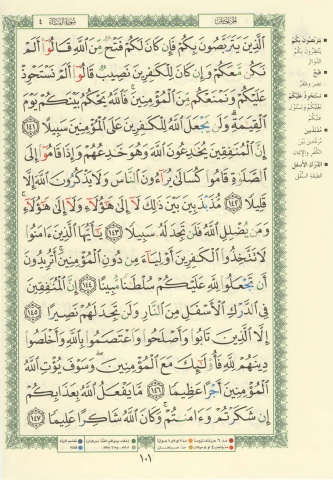 سورة النساء ٤
الَّذِينَ يَتَرَبَّصُونَ بِكُمْ فَإِن كَانَ لَكُمْ فَتْحٌ مِّنَ اللَّهِ قَالُوا أَلَمْ
نَكُن مَّعَكُمْ وَإِن كَانَ لِلْكَافِرِينَ نَصِيبٌ قَالُوا أَلَمْ نَسْتَحْوِذْ
عَلَيْكُمْ وَنَمْنَعْكُم مِّنَ الْمُؤْمِنِينَ فَاللَّهُ يَحْكُمُ بَيْنَكُمْ يَوْمَ
الْقِيَامَةِ وَلَن يَجْعَلَ اللَّهُ لِلْكَافِرِينَ عَلَى الْمُؤْمِنِينَ سَبِيلًا ١٤١
إِنَّ الْمُنَافِقِينَ يُخَادِعُونَ اللَّهَ وَهُوَ خَادِعُهُمْ وَإِذَا قَامُوا إِلَى
الصَّلَاةِ قَامُوا كُسَالَى يُرَاءُونَ النَّاسَ وَلَا يَذْكُرُونَ اللَّهَ إِلَّا
قَلِيلًا ١٤٢ مُّذَبْذَبِينَ بَيْنَ ذَٰلِكَ لَا إِلَىٰ هَٰؤُلَاءِ وَلَا إِلَىٰ هَٰؤُلَاءِ
وَمَن يُضْلِلِ اللَّهُ فَلَن تَجِدَ لَهُ سَبِيلًا ١٤٣ يَا أَيُّهَا الَّذِينَ آمَنُوا
لَا تَتَّخِذُوا الْكَافِرِينَ أَوْلِيَاءَ مِن دُونِ الْمُؤْمِنِينَ أَتُرِيدُونَ
أَن تَجْعَلُوا لِلَّهِ عَلَيْكُمْ سُلْطَانًا مُّبِينًا ١٤٤ إِنَّ الْمُنَافِقِينَ
فِي الدَّرْكِ الْأَسْفَلِ مِنَ النَّارِ وَلَن تَجِدَ لَهُمْ نَصِيرًا ١٤٥
إِلَّا الَّذِينَ تَابُوا وَأَصْلَحُوا وَاعْتَصَمُوا بِاللَّهِ وَأَخْلَصُوا
دِينَهُمْ لِلَّهِ فَأُولَٰئِكَ مَعَ الْمُؤْمِنِينَ وَسَوْفَ يُؤْتِ اللَّهُ
الْمُؤْمِنِينَ أَجْرًا عَظِيمًا ١٤٦ مَّا يَفْعَلُ اللَّهُ بِعَذَابِكُمْ
إِن شَكَرْتُمْ وَآمَنتُمْ وَكَانَ اللَّهُ شَاكِرًا عَلِيمًا ١٤٧
١٠١